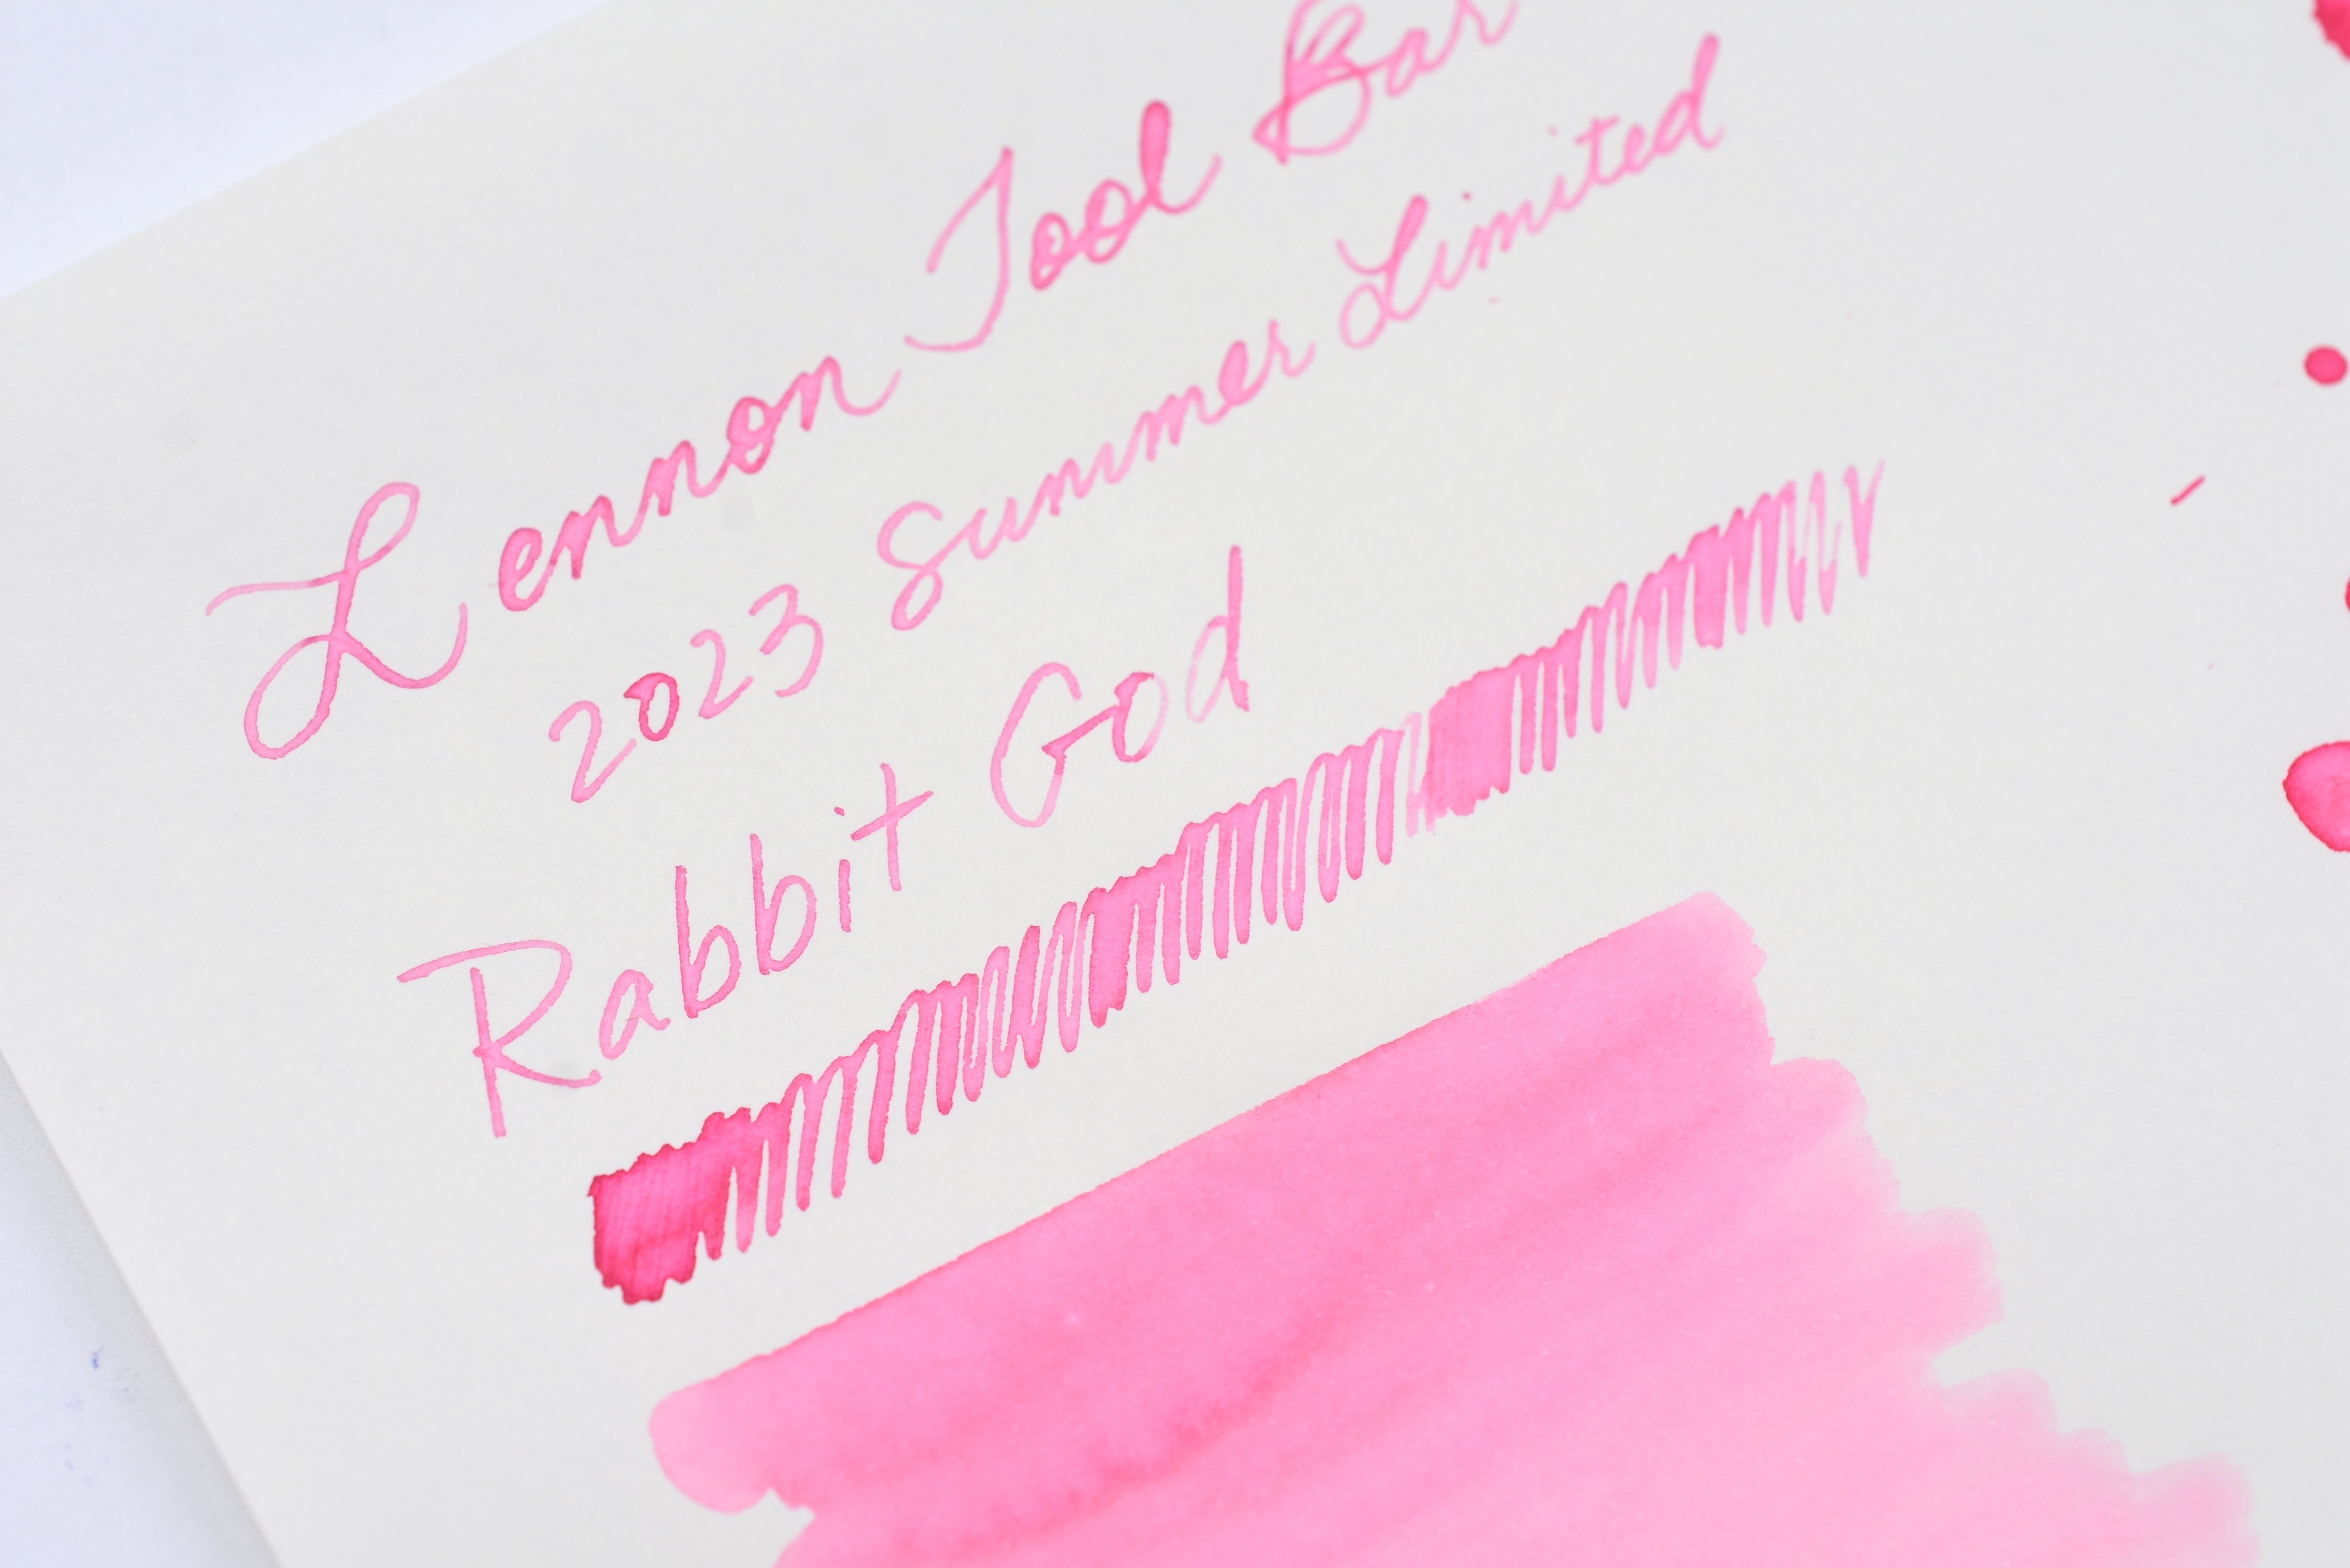 Lennon Tool Bar
2023 Summer Limited
Rabbit God